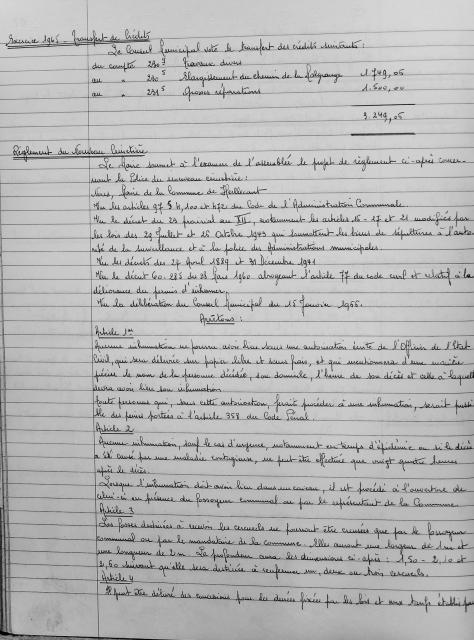 Exercice 1965 - Transfert de Crédits
Le Conseil Municipal vote le transfert des crédits suivants :
du compte 230 Travaux divers
au " 230 5 Elargissement du chemin de la 1.749,05
au " 231 5 Grosses réparations 1.500,00
3.249,05
Règlement du Nouveau Cimetière
Le Maire soumet à l'examen de l'assemblée le projet de règlement ci-après concer-
nant la Police du nouveau cimetière :
Nous, Maire de la Commune de
Vu les articles 97 § 4, 100 et 472 du Code de l'Administration Communale.
Vu le décret du 23 prairial an XII, notamment les articles 16 - 17 et 21 modifiés par
les lois des 29 Juillet et 26 Octobre 1943 qui soumettent les lieux de sépultures à l'auto-
rité de la surveillance et à la police des Administrations municipales.
Vu les décrets des 24 Avril 1889 et 31 Décembre 1941
Vu le décret 60.285 du 28 Mars 1960 abrogeant l'article 77 du code civil et relatif à la
délivrance du permis d'inhumer.
Vu la délibération du Conseil Municipal du 15 Janvier 1966.
Arrêtons :
Article 1er
Aucune inhumation ne pourra avoir lieu sans une autorisation écrite de l'Officier de l'Etat
Civil, qui sera délivrée sur papier libre et sans frais, et qui mentionnera d'une manière
précise le nom de la personne décédée, son domicile, l'heure de son décès et celle à laquelle
devra avoir lieu son inhumation
Toute personne qui, sans cette autorisation, ferait procéder à une inhumation, serait passi-
ble des peines portées à l'article 358 du Code Pénal.
Article 2
Aucune inhumation, sauf le cas d'urgence, notamment en temps d'épidémie ou si le décès
a été causé par une maladie contagieuse, ne peut être effectuée que vingt quatre heures
après le décès.
Lorsque l'inhumation doit avoir lieu dans un caveau, il est procédé à l'ouverture de
celui-ci en présence du fossoyeur communal ou par le représentant de la Commune.
Article 3
Les fosses destinées à recevoir les cercueils ne pourront être creusées que par le fossoyeur
communal ou par le mandataire de la commune. Elles auront une largeur de 1 m et
une longueur de 2 m. La profondeur aura les dimensions ci-après : 1,50 - 2,10 et
2,60 suivant qu'elle sera destinée à renfermer un, deux ou trois cercueils.
Article 4
Il peut être délivré des concessions pour les durées fixées par les lois et aux tarifs établis par